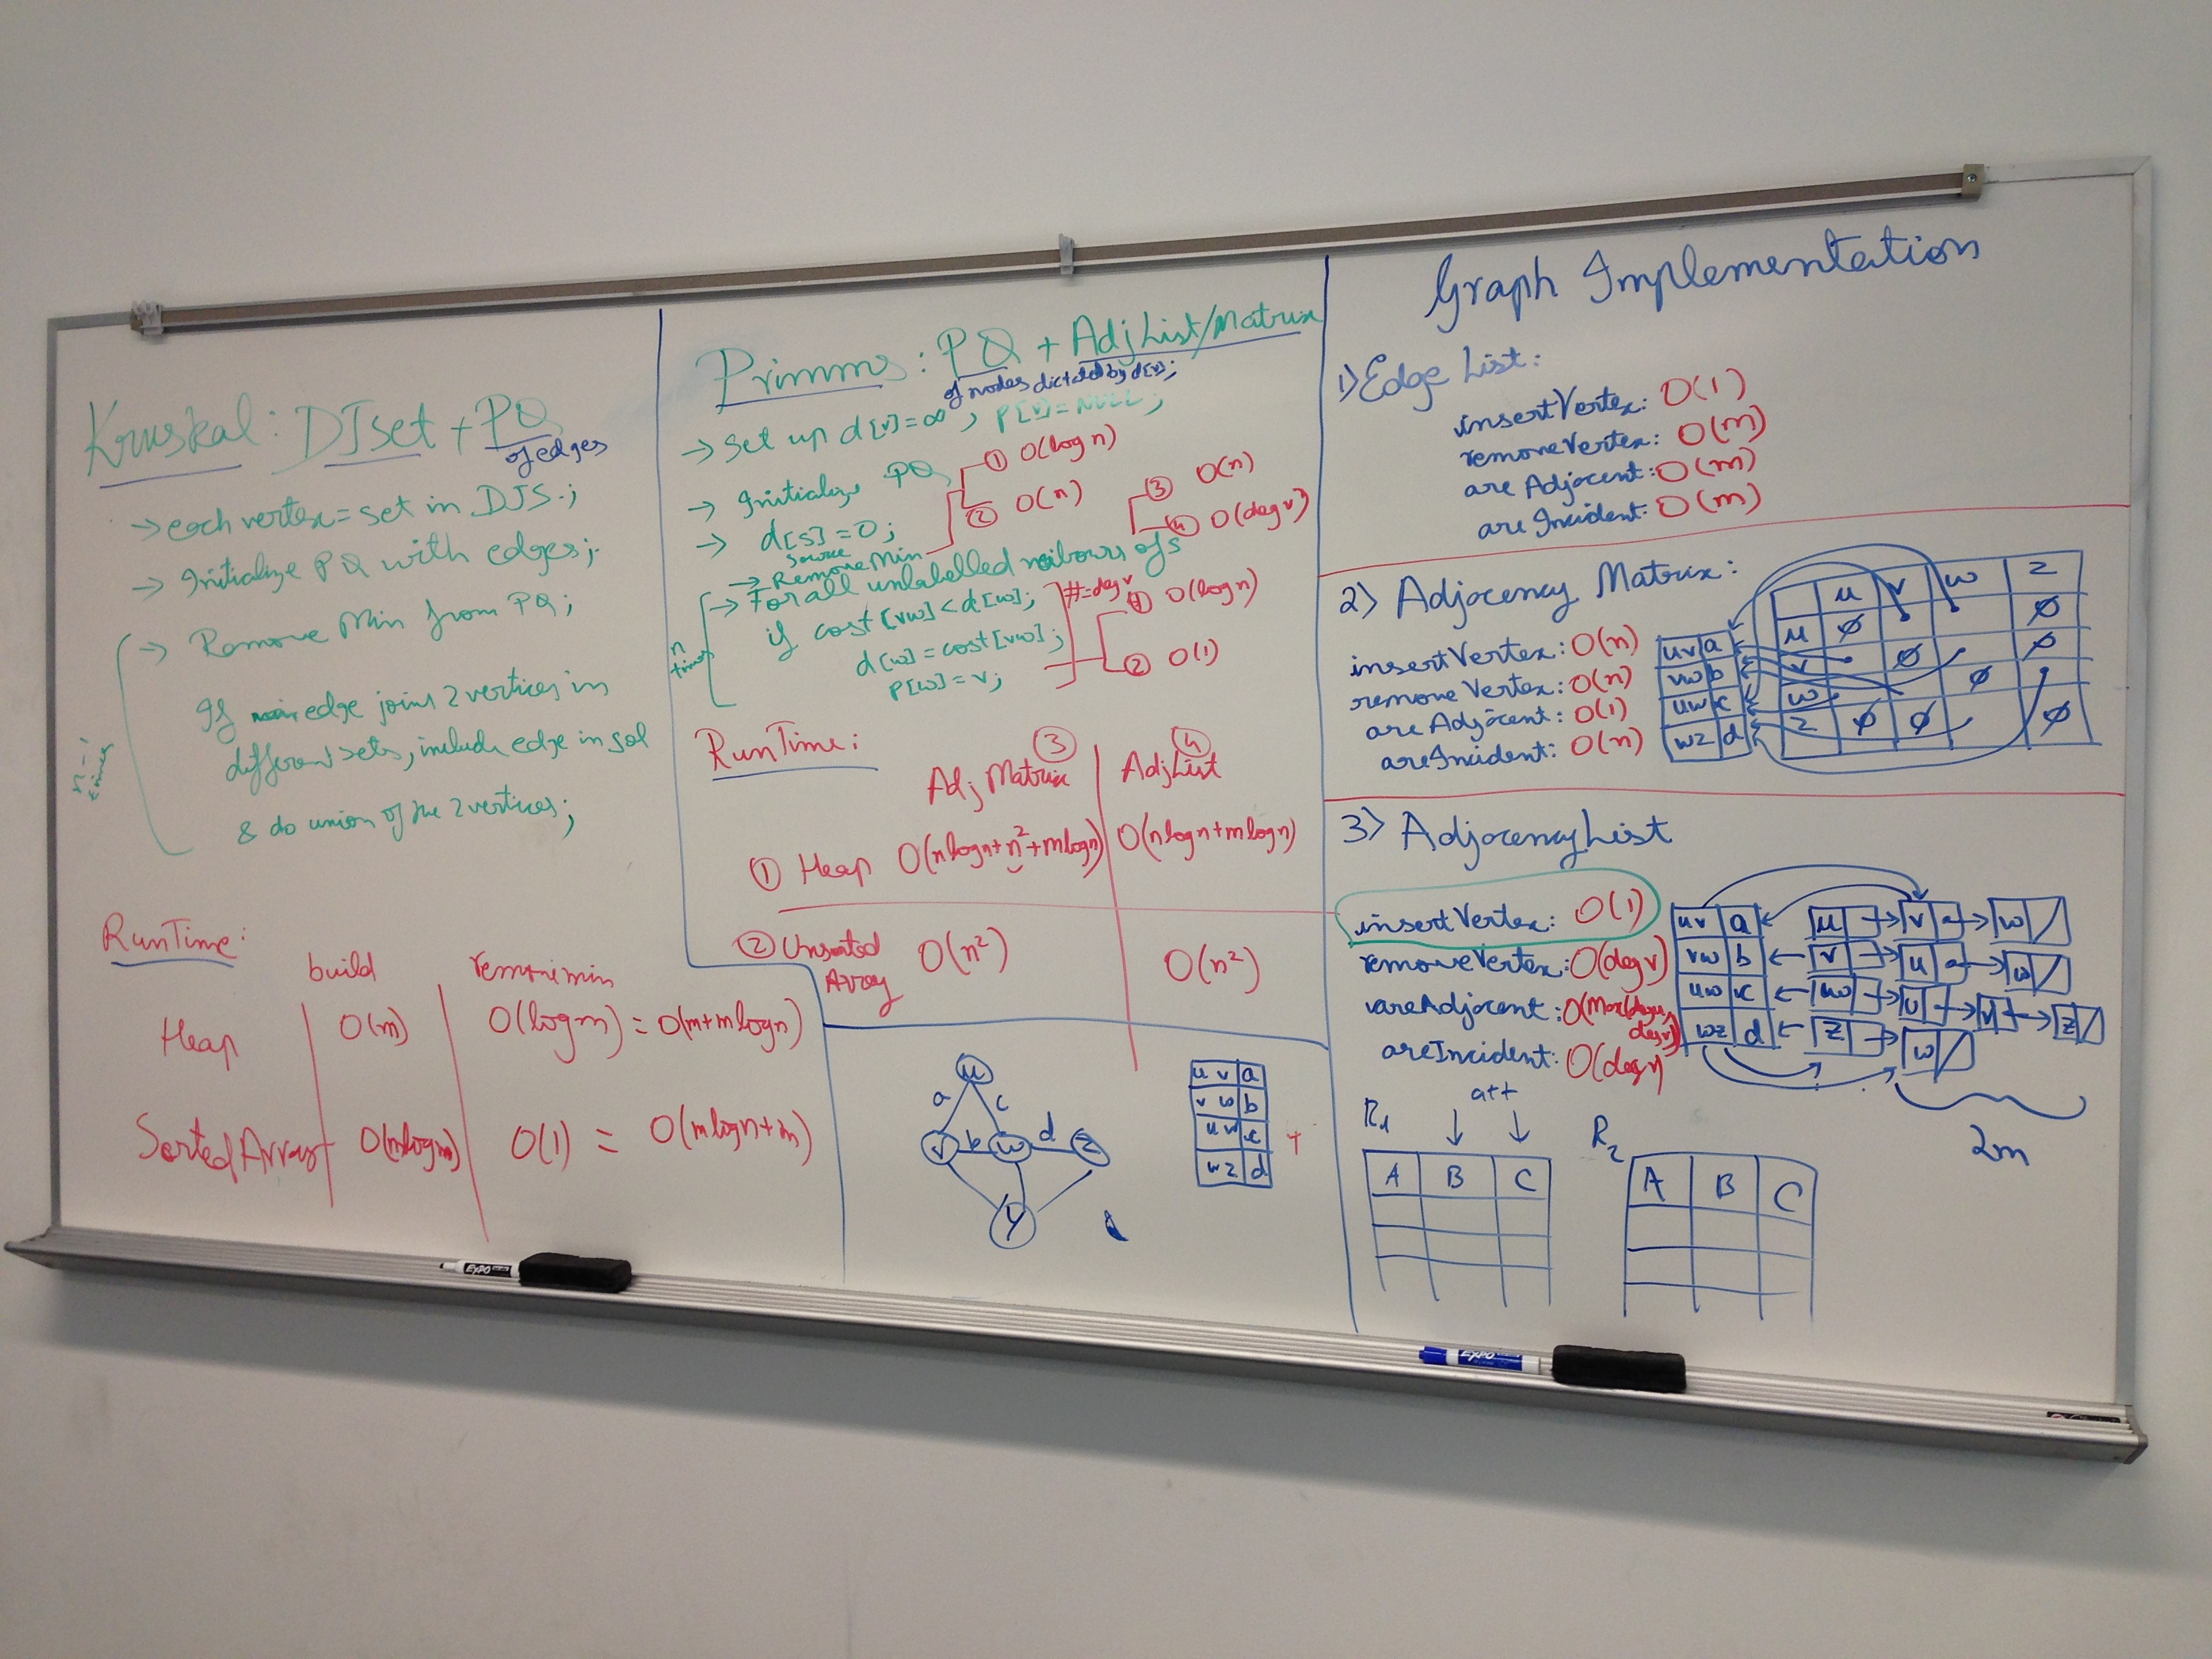 Kruskal: DJset + PQ
of edges
→ each vertex = set in DJS.;
→ Initialize PQ with edges;
→ Remove Min from PQ;
If edge joins 2 vertices in
different sets, include edge in sol
& do union of the 2 vertices;
n-1
times
RunTime:
build
remove min
Heap
O(m)
O(log m) = O(m+mlogn)
Sorted Array
O(mlogm)
O(1) = O(mlogn+m)
Primms: PQ + AdjList/Matrix
of nodes dictated by d[v];
→ Set up d[v]=∞, p[v]=NULL;
→ Initialize PQ
① O(log n)
② O(n)
→ d[s]=0;
source
→ Remove Min
③ O(n)
④ O(deg v)
→ For all unlabelled neibours of s
if cost[vw] < d[w];
d[w]=cost[vw];
p[w]=v;
n
times
#=deg v
① O(log n)
② O(1)
RunTime:
③
④
Adj Matrix
AdjList
① Heap O(nlogn+n²+mlogn)
O(nlogn+mlogn)
② Unsorted
Array
O(n²)
O(n²)
u
a
c
v
b
w
d
z
y
u v a
v w b
u w c
w z d
+
Graph Implementation
1) Edge List:
insertVertex: O(1)
removeVertex: O(m)
are Adjacent: O(m)
are Incident: O(m)
2) Adjacency Matrix:
insertVertex: O(n)
removeVertex: O(n)
are Adjacent: O(1)
areIncident: O(n)
uv a
vw b
uw c
wz d
u v w z
u ∅ ∅
v ∅ ∅
w ∅
z ∅ ∅ ∅
3) AdjacencyList
insertVertex: O(1)
removeVertex: O(deg v)
areAdjacent: O(Max(deg u,
deg v)
areIncident: O(deg v)
uv a
vw b
uw c
wz d
u v a w
v u a w
w u v z
z w
2m
att
R1
A B C
R2
A B C
EXPO
EXPO